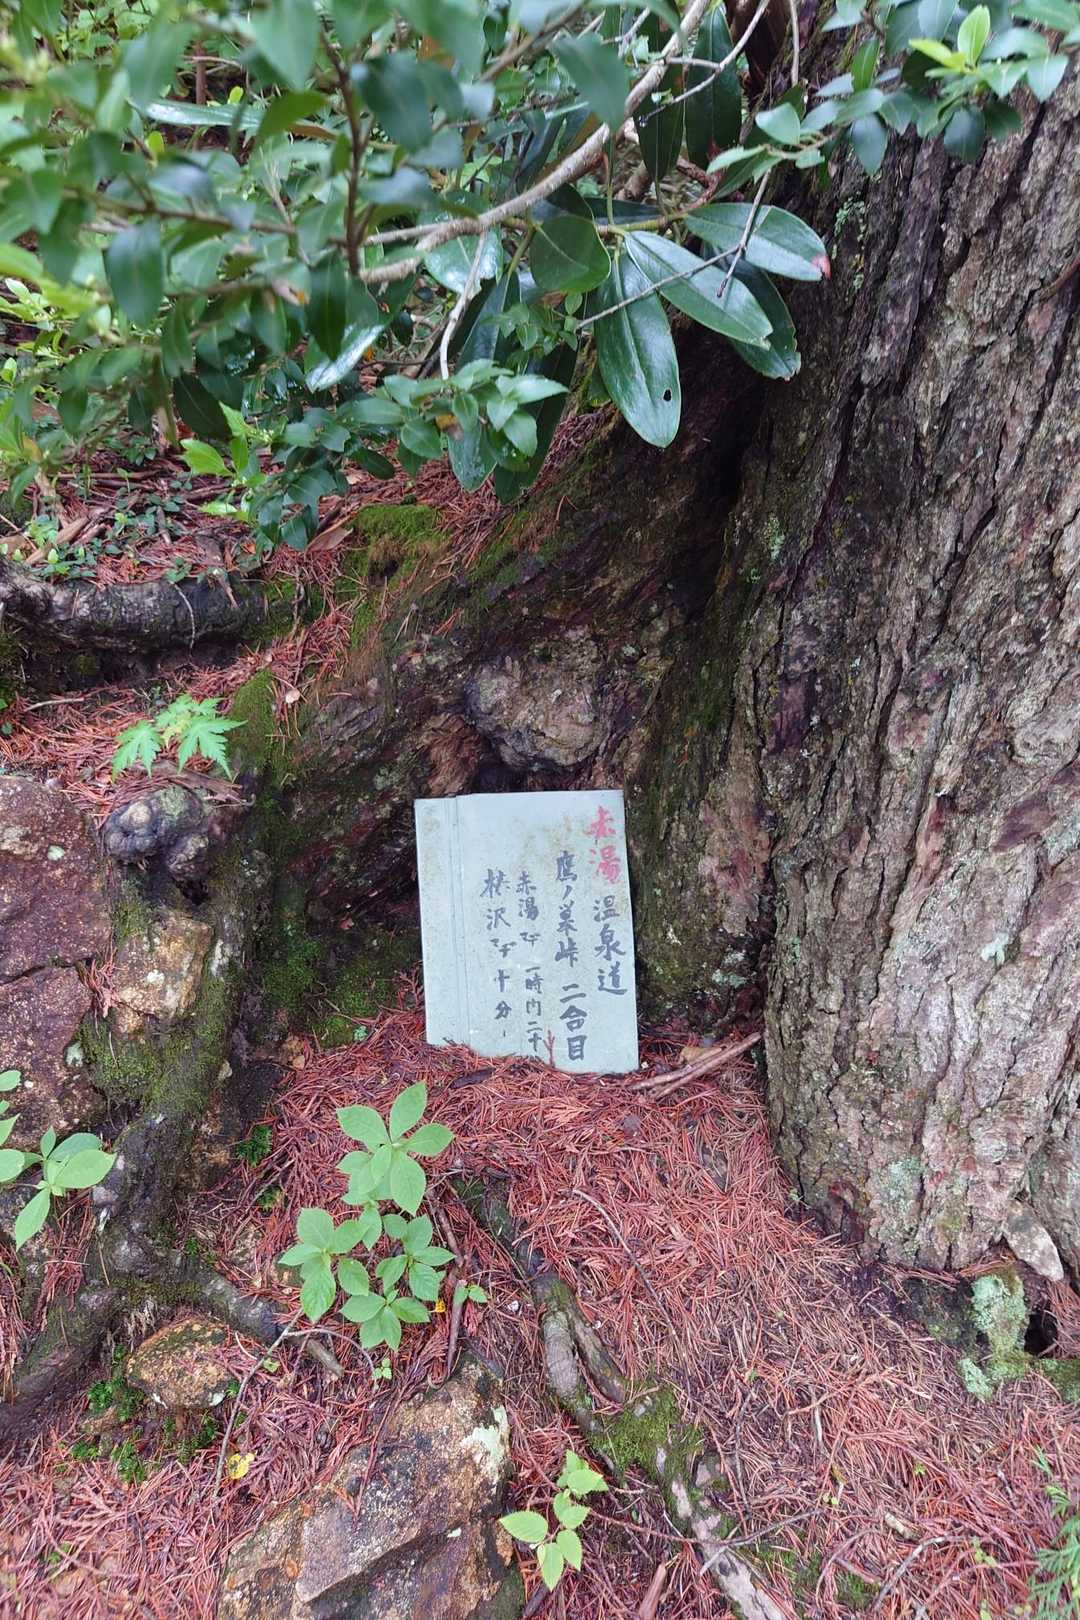 赤湯温泉道
鷹ノ巣峠 二合目
赤湯まで 一時間二十
棒沢まで 十分